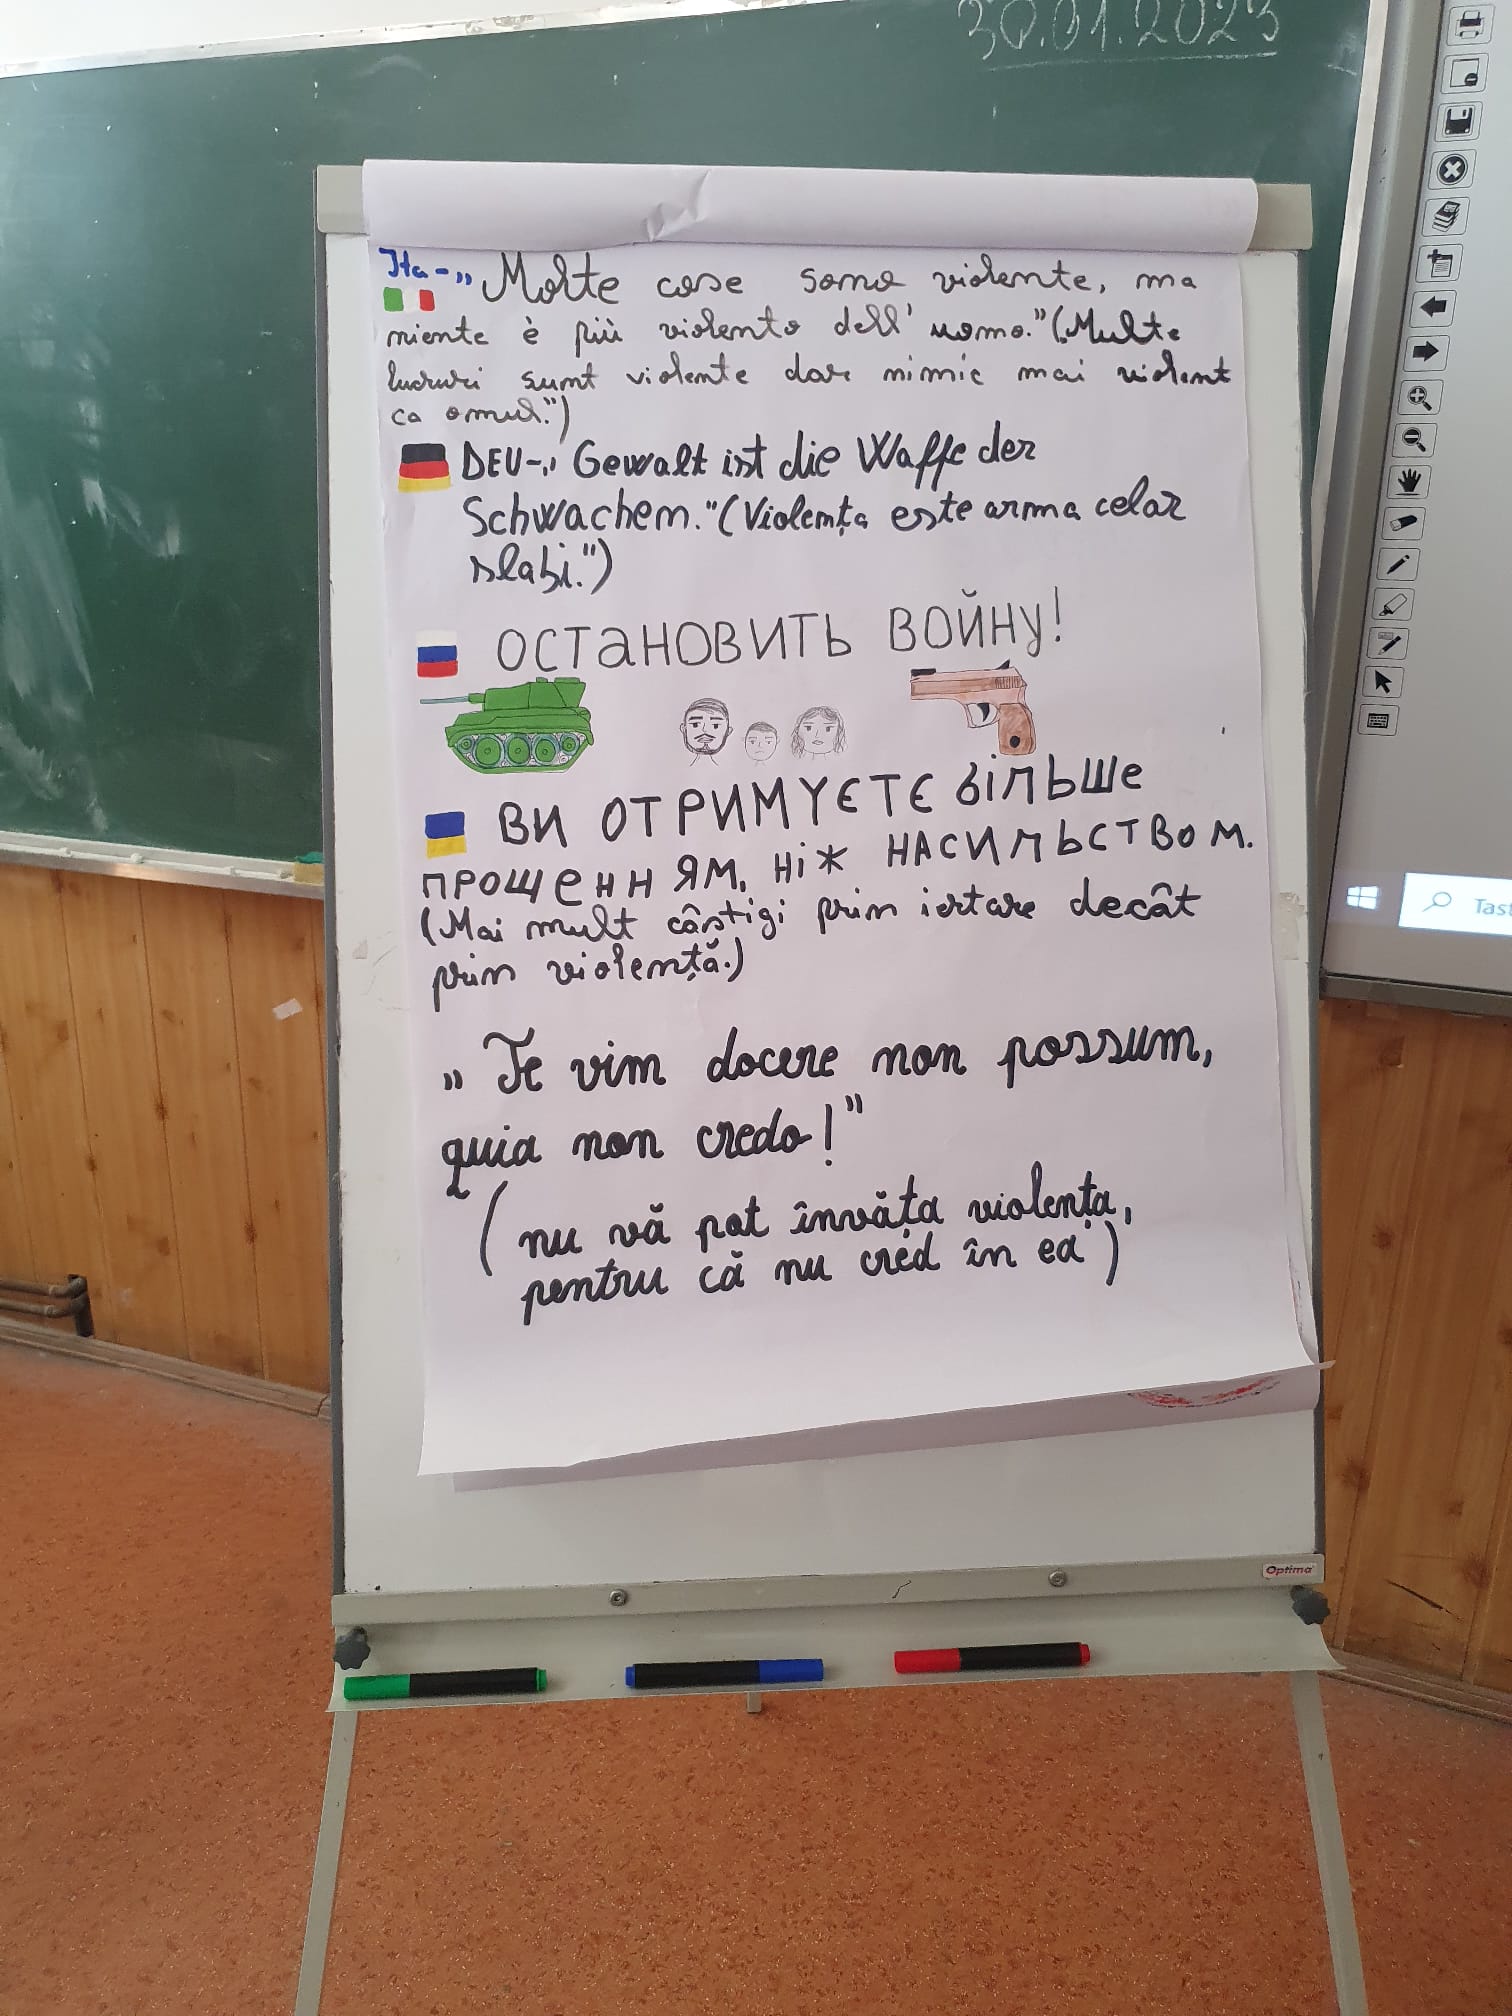 30.01.2023
Ita - „Molte cose sono violente, ma
niente è più violento dell' uomo." („Multe
lucruri sunt violente dar nimic mai violent
ca omul.")
DEU-„Gewalt ist die Waffe der
Schwachen." (Violența este arma celor
slabi.")
ОСТАНОВИТЬ ВОЙНУ!
ВИ ОТРИМУЄТЄ БІЛЬШЕ
ПРОЩЕННЯМ, НІЖ НАСИЛЬСТВОМ.
(Mai mult câștigi prin iertare decât
prin violență.)
„Te vim docere non possum,
quia non credo!"
(nu vă pot învăța violența,
pentru că nu cred în ea)
Optima
Tast